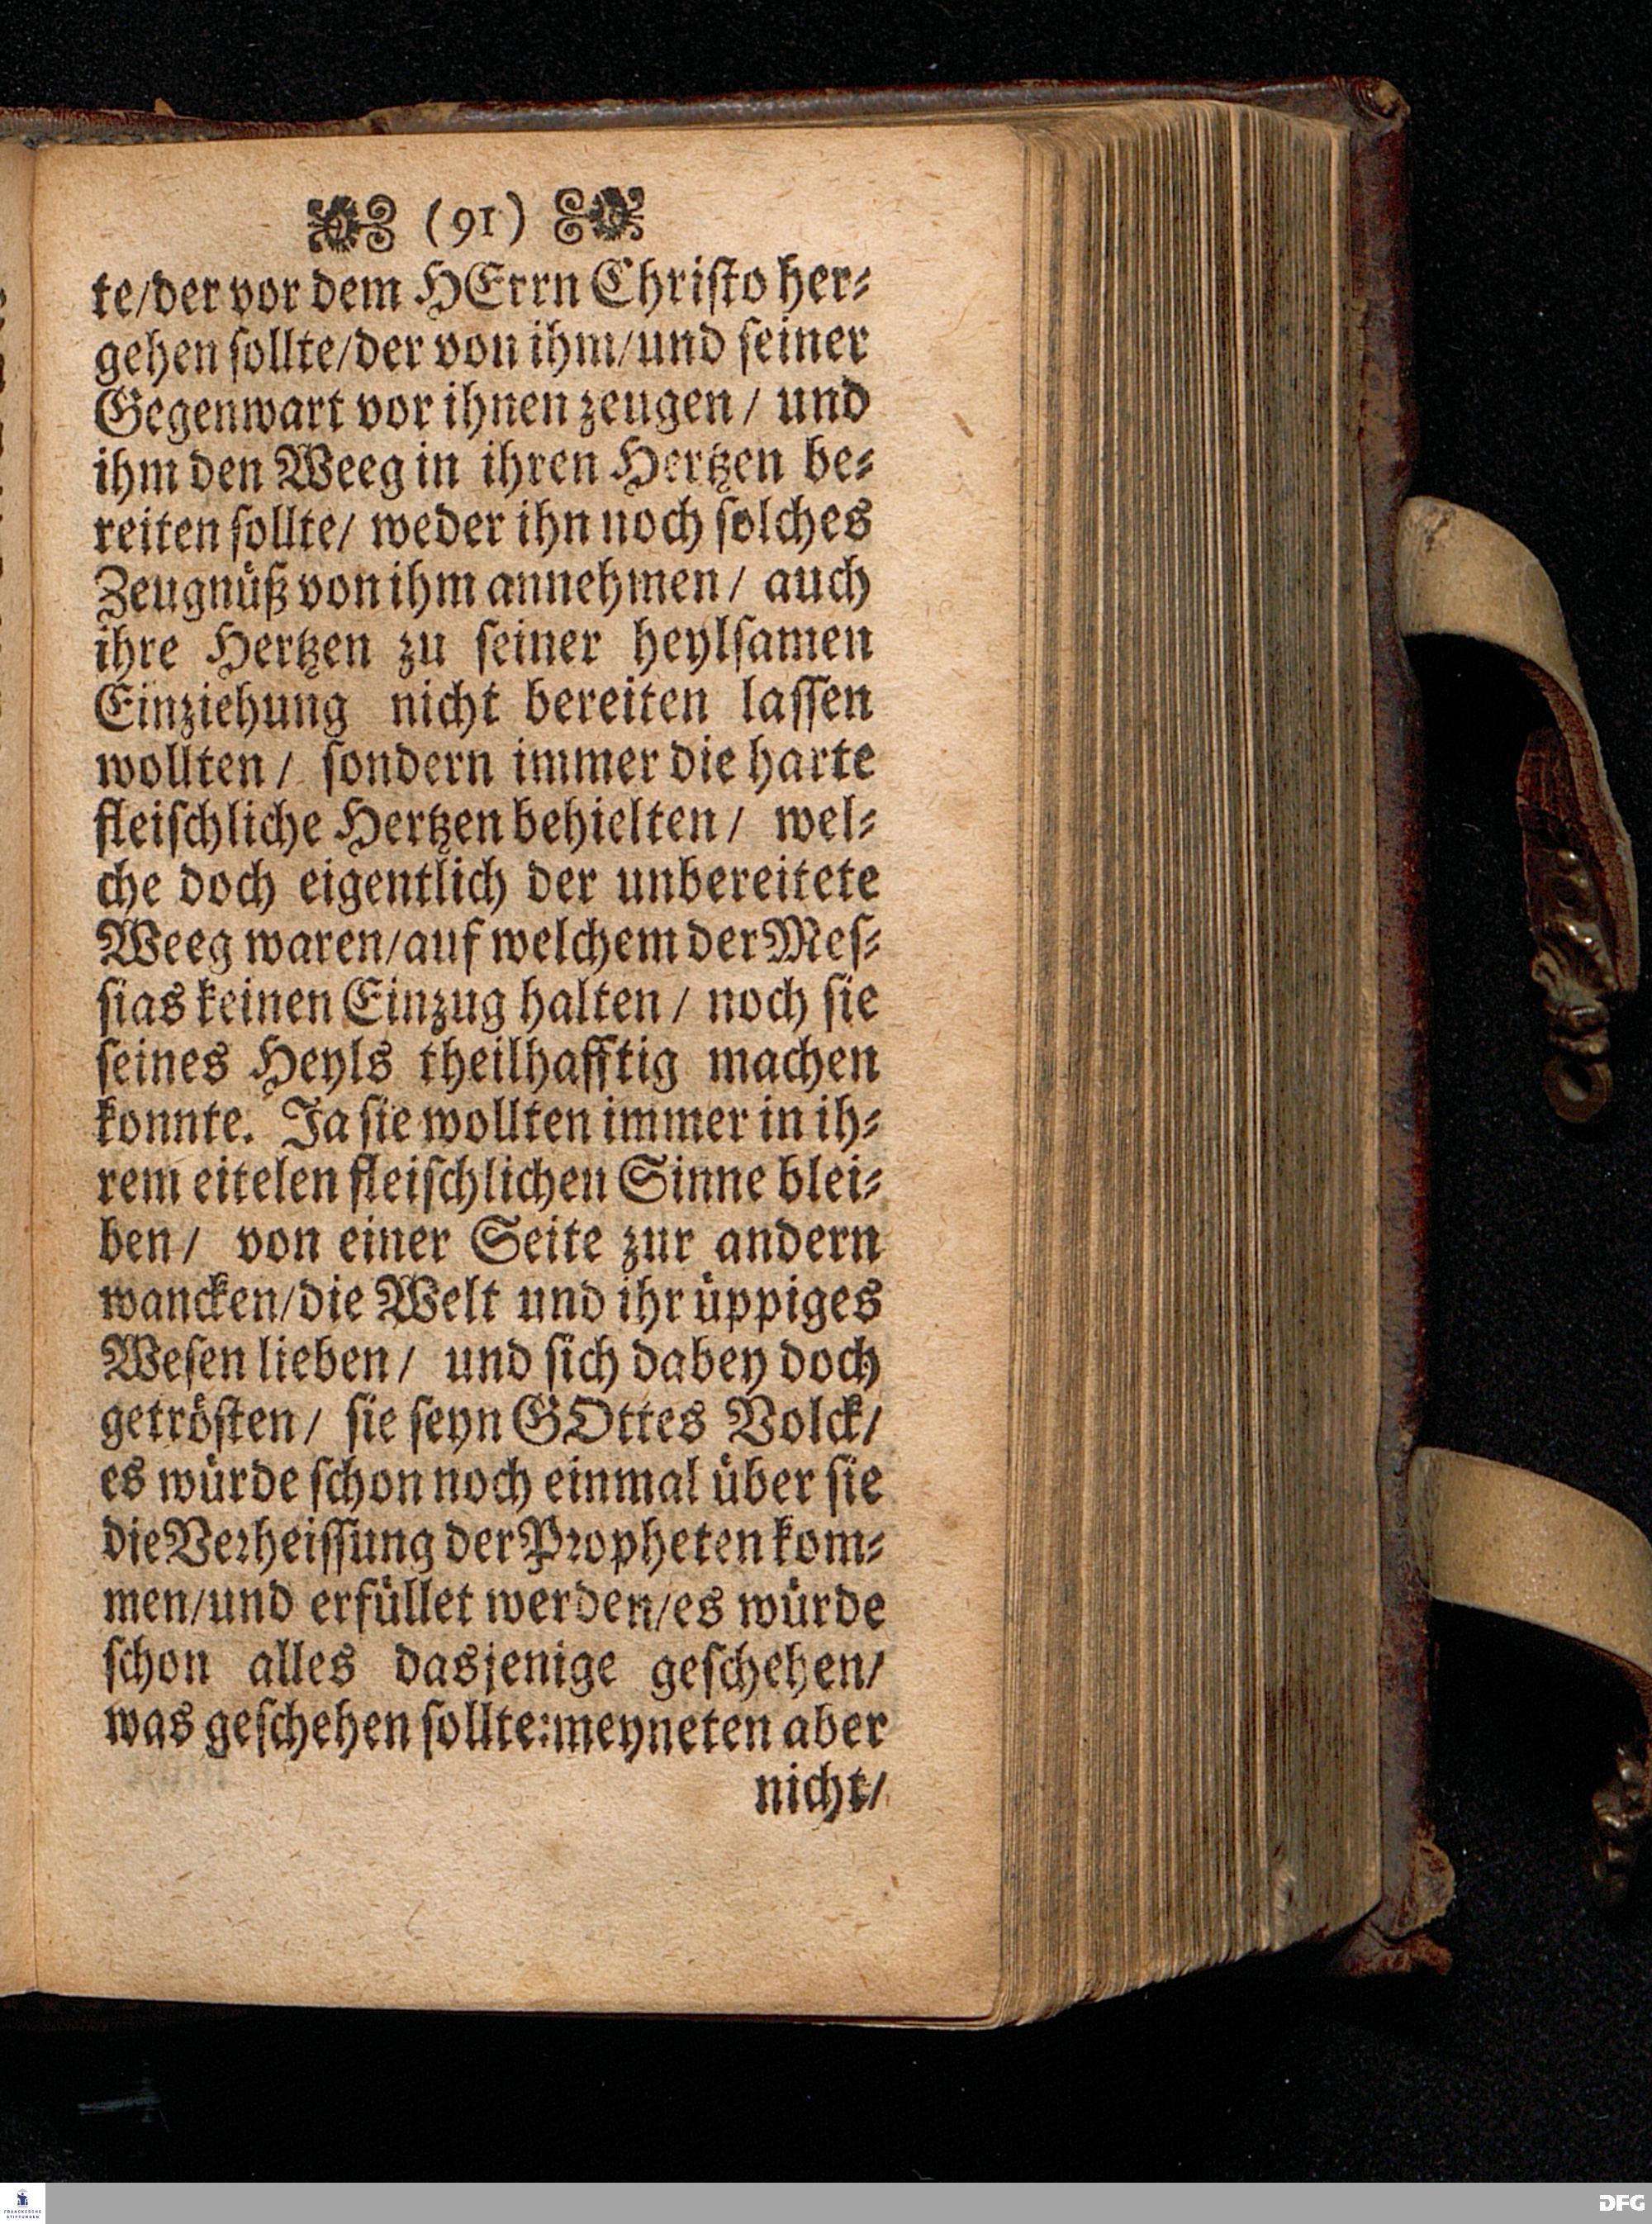 (91)
te/der vor dem HErrn Christo her⸗
gehen sollte/der von ihm/und seiner
Gegenwart vor ihnen zeugen / und
ihm den Weeg in ihren Hertzen be⸗
reiten sollte/ weder ihn noch solches
Zeugnüß von ihm annehmen / auch
ihre Hertzen zu seiner heylsamen
Einziehung nicht bereiten lassen
wollten / sondern immer die harte
fleischliche Hertzen behielten / wel⸗
che doch eigentlich der unbereitete
Weeg waren/auf welchem der Mes⸗
sias keinen Einzug halten / noch sie
seines Heyls theilhafftig machen
konnte. Ja sie wollten immer in ih⸗
rem eitelen fleischlichen Sinne blei⸗
ben / von einer Seite zur andern
wancken/die Welt und ihr üppiges
Wesen lieben / und sich dabey doch
getrösten / sie seyn GOttes Volck/
es würde schon noch einmal über sie
die Verheissung der Propheten kom⸗
men/und erfüllet werden/es würde
schon alles dasjenige geschehen/
was geschehen sollte: meyneten aber
nicht/
FRANCKESCHE
STIFTUNGEN
DFG